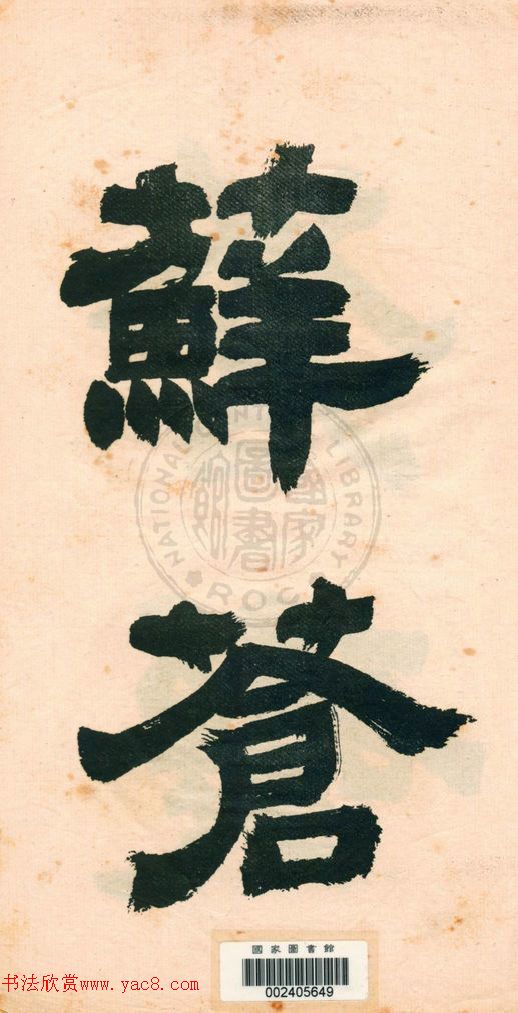 蘚蒼
NATIONAL LIBRARY
ROC
國家圖書館
國家圖書館
002405649
书法欣赏www.yac8.com